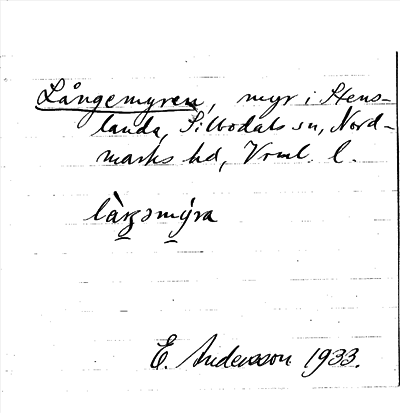 Långemyren, myr i Stens-
landa, Silbodals sn, Nord-
marks hd, Vrml. l.
làŋəmýra
E. Andersson 1933.